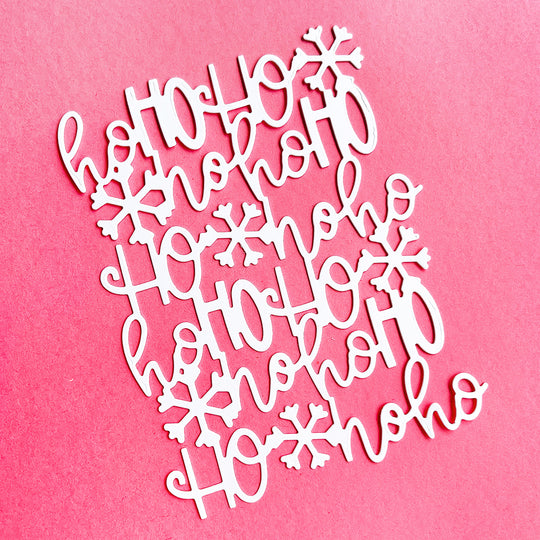 hoHOHO
hohoHO
HO hoho
hoHOHO
hohoHO
HO hoho